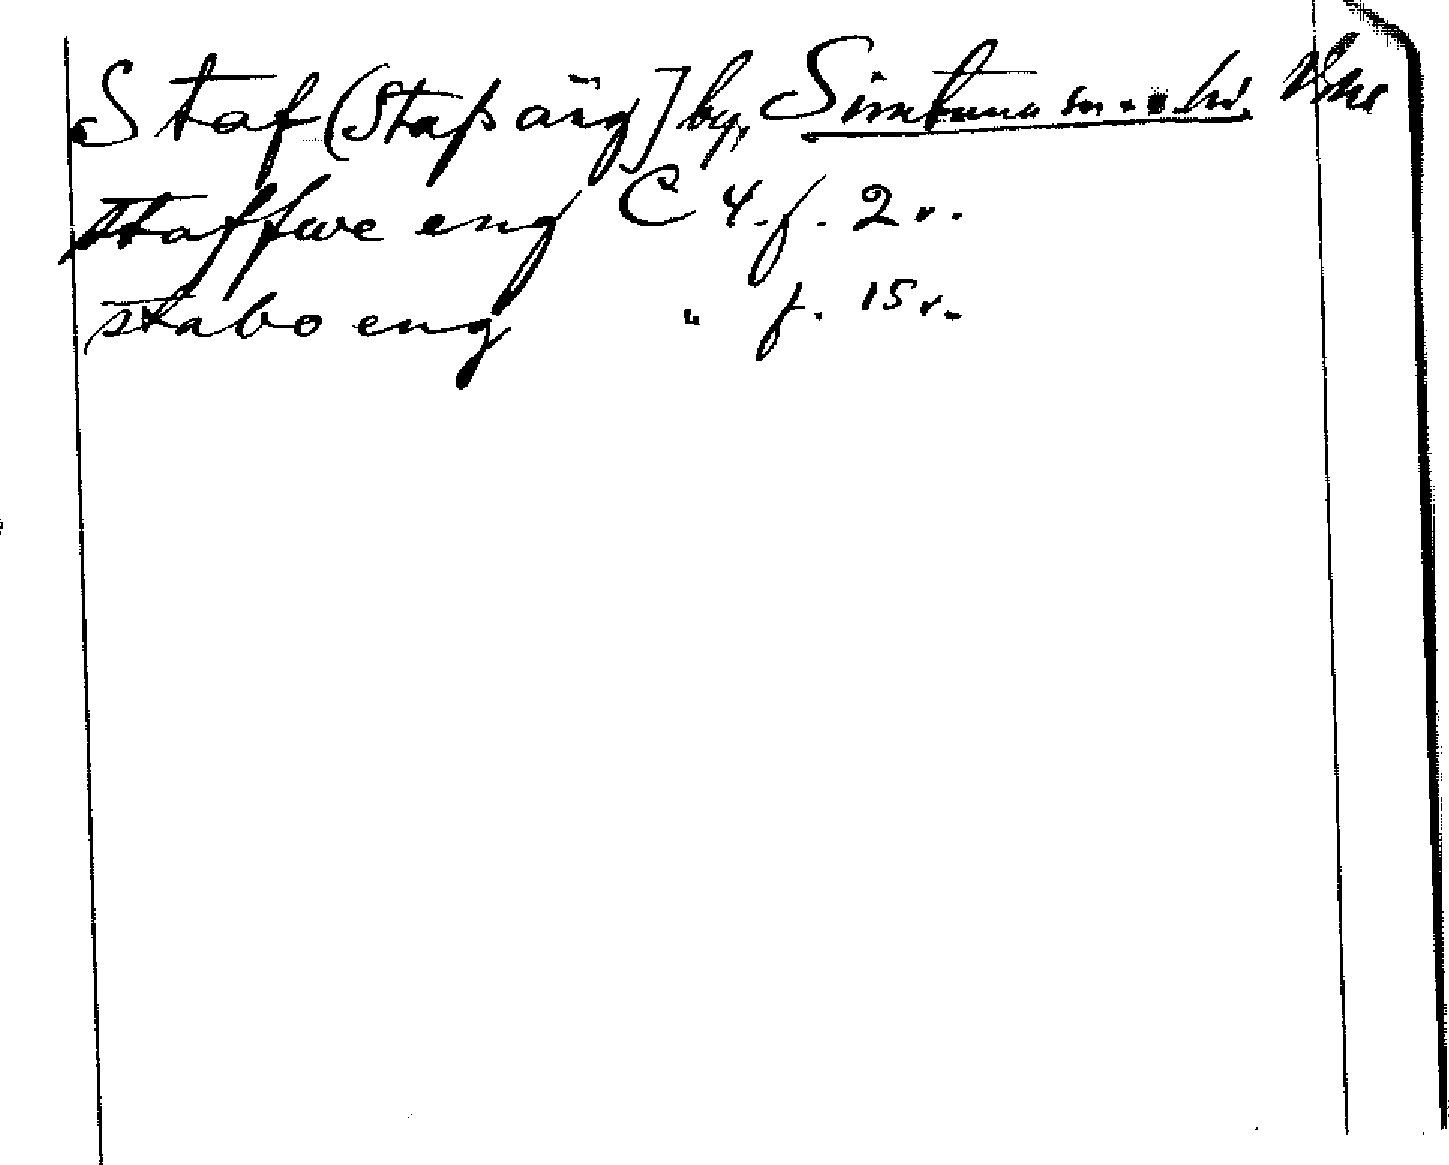 Staf (Stapäng] by, Simtuna sn. o. hd.
staffwe eng C 4. f. 2 v.
stabo eng " f. 15 v.